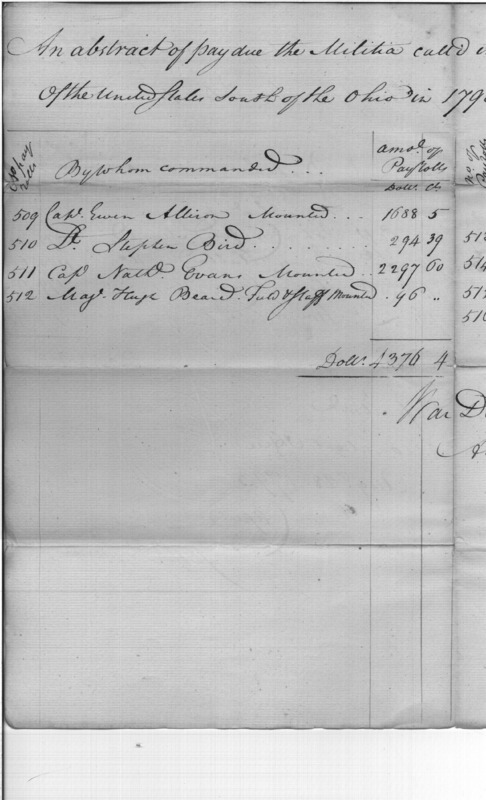 An abstract of pay due the Militia called
Of the United States South of the Ohio in 179
No pay rolls
By whom commanded . . .
amo.t of Payrolls
Doll.s Cts
no. of Pay rolls
509 Cap.t Ewen Allison Mounted . . . 1688 5
510 Lt. Stephen Bird . . . . . . . 294 39
511 Cap.t Nath.l Evans Mounted . . 2297 60
512 Maj.r Hugh Beard. Field & Staff Mounted . 96 "
513
514
515
516
Doll.s 4376 4
War D